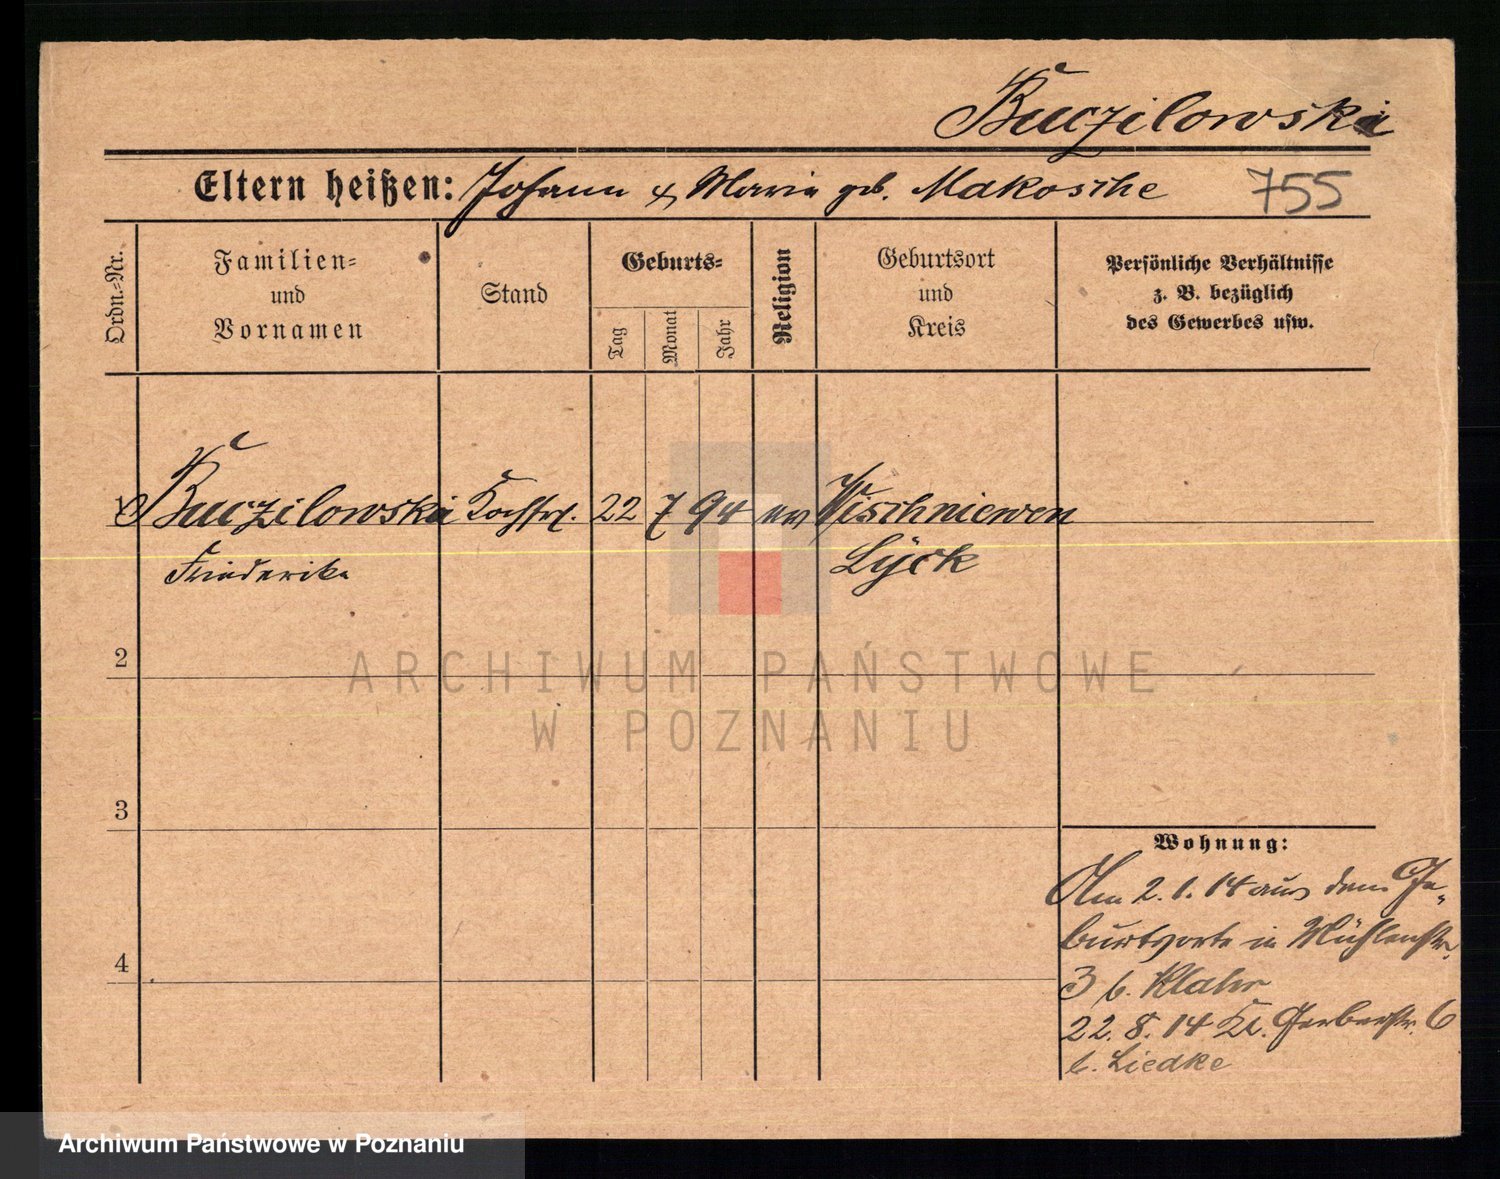 Buczilowski
Eltern heißen: Johann & Maria geb. Makosche 755
Ordn.-Nr.
Familien=
und
Vornamen
Stand
Geburts=
Tag
Monat
Jahr
Religion
Geburtsort
und
Kreis
Persönliche Verhältnisse
z. B. bezüglich
des Gewerbes usw.
1 Buczilowski Kochfrl. 22 7 94 ev Wischniewen
Friederike Lyck
2
3
4
Wohnung:
Am 2. 1. 14 aus dem Ge-
burtsorte in Mühlenstr.
3 b. Klahr
22. 8. 14 Kl. Gerberstr. 6
b. Liedke
ARCHIWUM PAŃSTWOWE
W POZNANIU
Archiwum Państwowe w Poznaniu